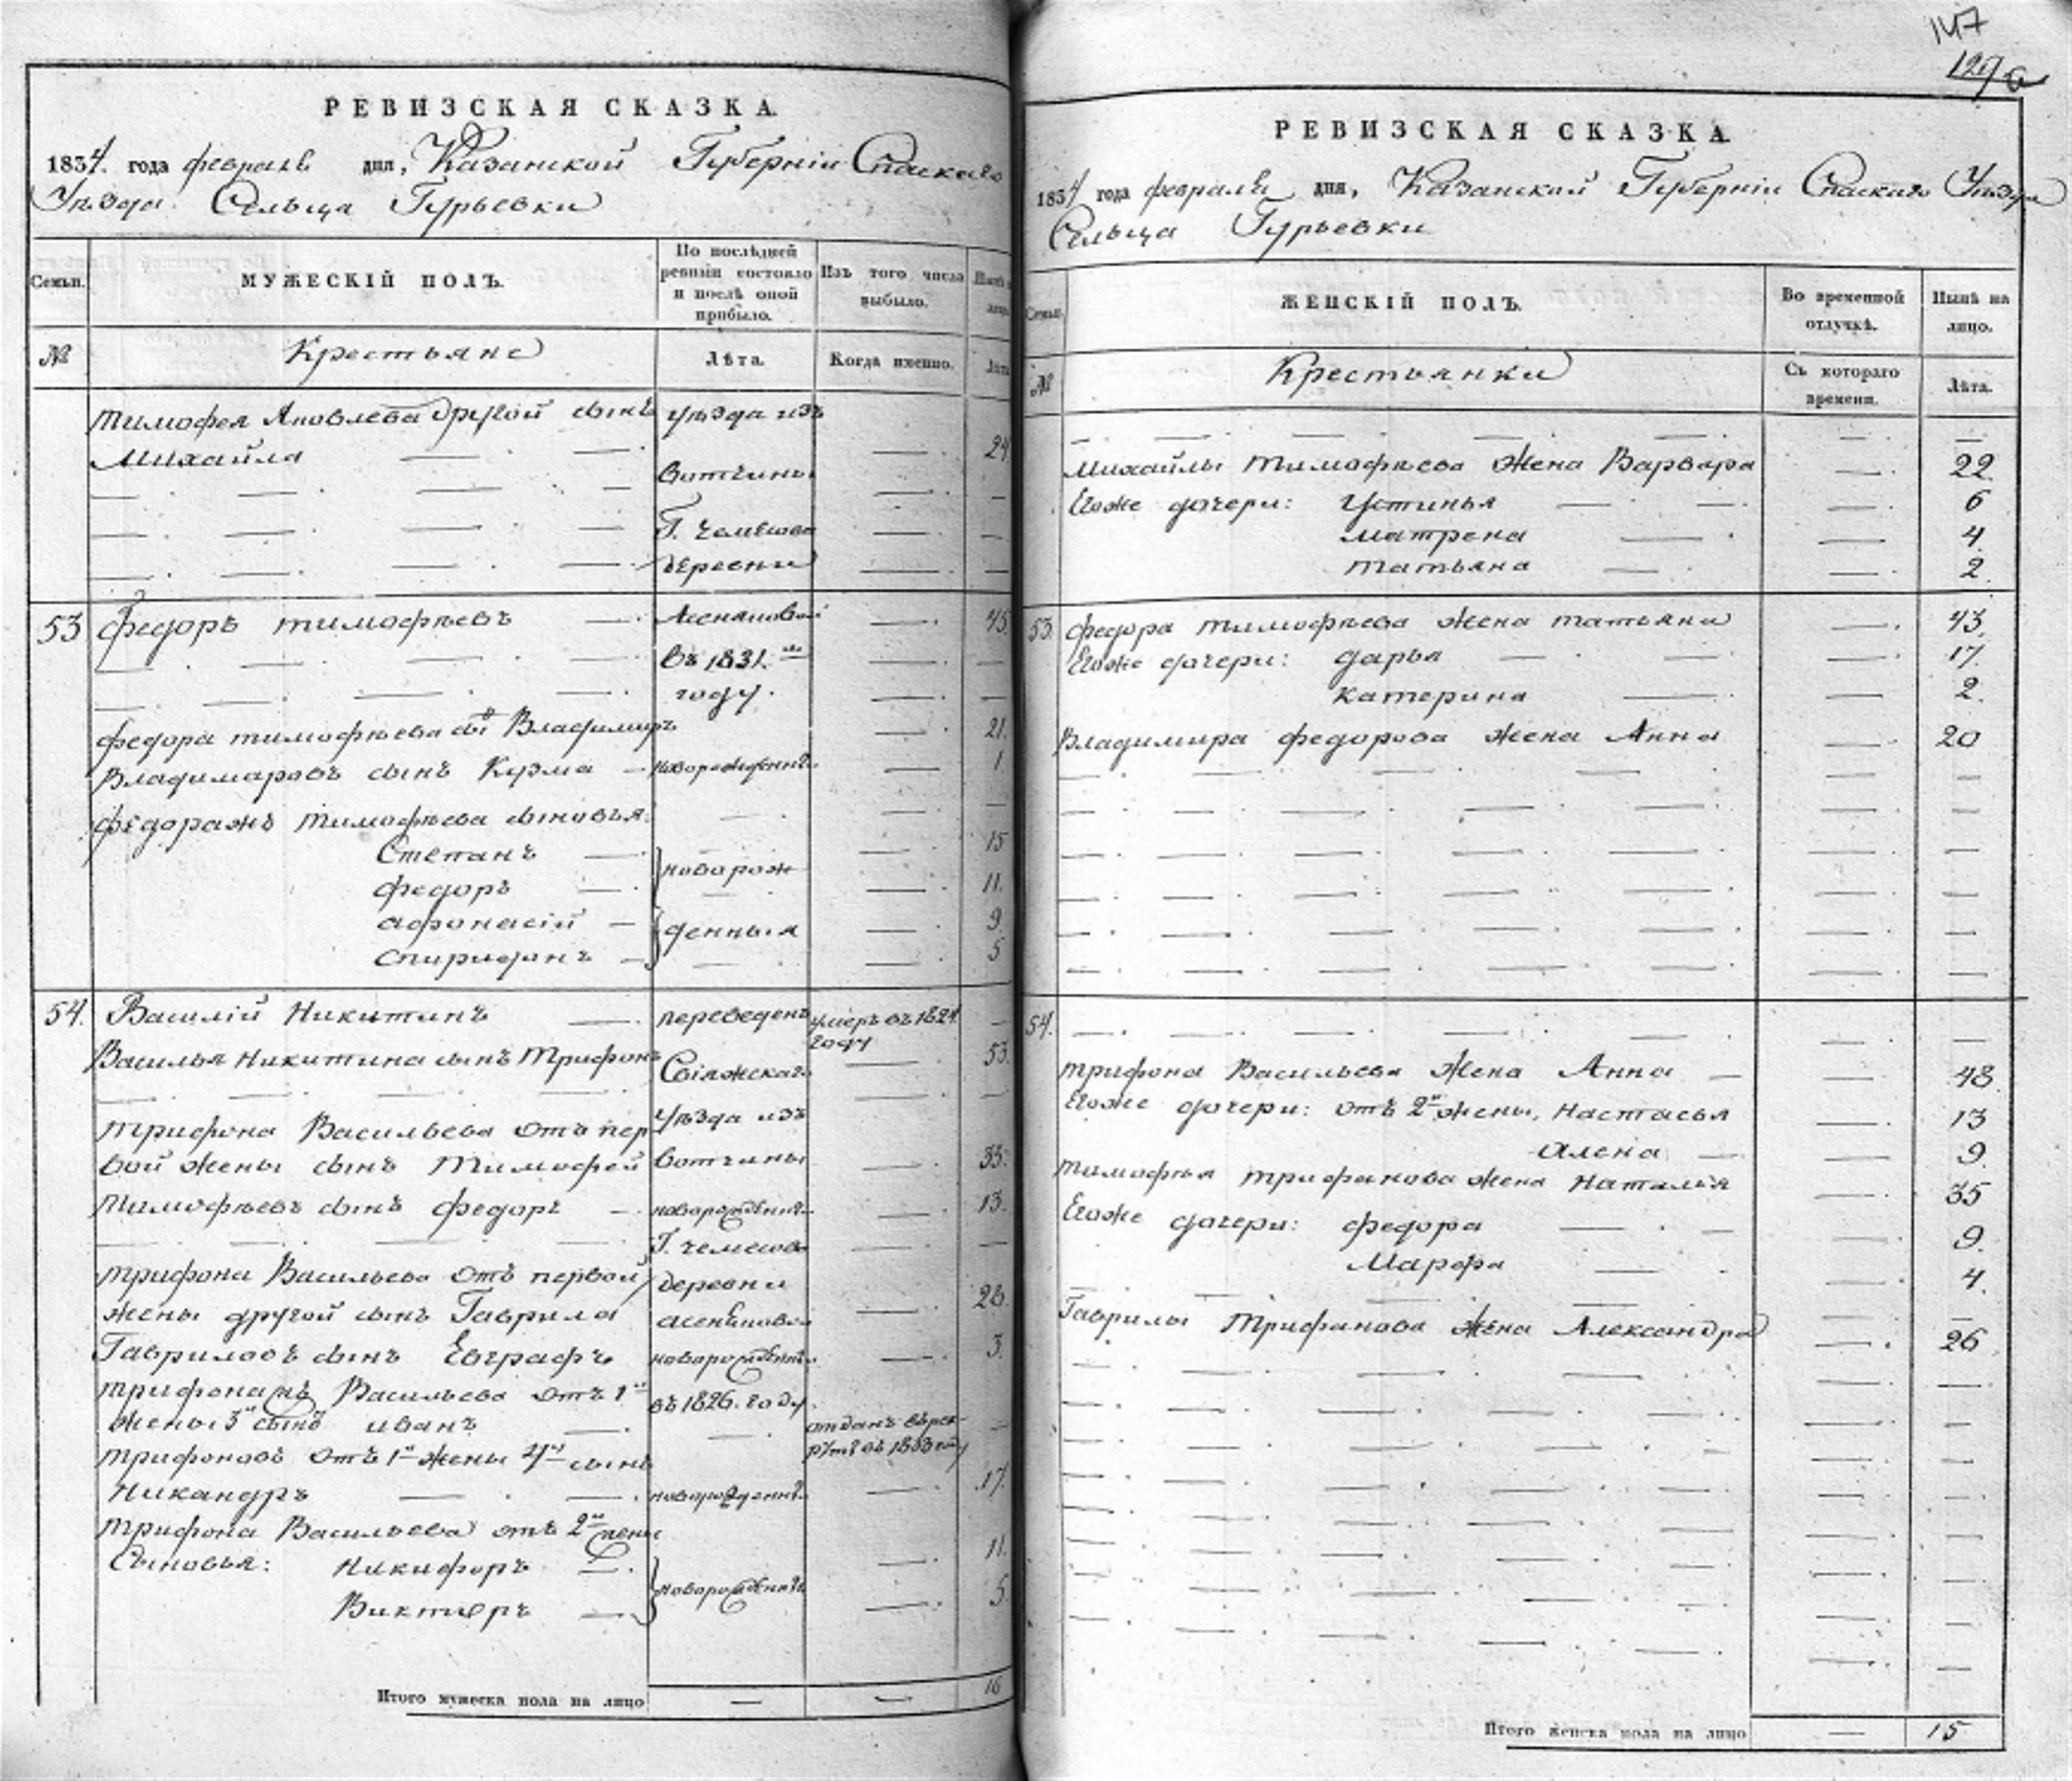 147
РЕВИЗСКАЯ СКАЗКА.
1834. года февраля дня, Казанской Губерніи Спаскаго
Уѣзда Сельца Гурьевки
Семьи.
МУЖЕСКІЙ ПОЛЪ.
По послѣдней ревизіи состояло и послѣ оной прибыло.
Изъ того числа выбыло.
№
Крестьяне
Лѣта.
Когда именно.
Тимофея Яковлева другой сынъ уѣзда изъ
Михайла — — 24
вотчины
Г. Чемесова
деревни
53 Федоръ тимофѣевъ — — 45
въ 1831.мъ
году.
федора тимофѣева сынъ Владимиръ — 21.
Владимировъ сынъ Кузма — новорожденный — 1
федора жъ тимофѣева сыновья:
Степанъ — — 15
новорож
федоръ — — 11.
афонасій — — 9
денныя
спиридонъ — — 5
54. Василій Никитинъ — переведенъ умеръ въ 1824
году
Василья Никитина сынъ Трифонъ — 53.
Свіяжскаго
трифона Васильева отъ пер уѣзда изъ
вой жены сынъ Тимофей вотчины — 33.
тимофѣевъ сынъ федоръ — новорожденный — 13.
Г. чемесова
трифона Васильева отъ первой деревни
жены другой сынъ Гаврила — 26.
Гавриловъ сынъ Евграфъ новорожденный — 3.
трифона жъ Васильева отъ 1й въ 1826. году
жены 3й сынъ иванъ — отданъ въ рек-
руты въ 1833 году
трифоновъ отъ 1й жены 4й сынъ
Никандръ — — новорожденный — 17.
трифона Васильева отъ 2й жены
Сыновья: Никифоръ — — 11.
новорожденныя
Викторъ — — 5.
Итого мужеска пола на лицо — — 16
РЕВИЗСКАЯ СКАЗКА.
1834 года февраля дня, Казанской Губерніи Спаскаго Уѣзда
Сельца Гурьевки
Семьи.
ЖЕНСКІЙ ПОЛЪ.
Во временной отлучкѣ.
Нынѣ на лицо.
№
Крестьянки
Съ котораго времени.
Лѣта.
Михайлы тимофѣева жена Варвара — 22.
Егоже дочери: Устинья — — 6
матрена — — 4
татьяна — — 2.
53. федора тимофѣева жена татьяна — 43.
Егоже дочери: дарья — — 17.
катерина — — 2.
Владимира федорова жена Анна — 20
54.
трифона Васильева жена Анна — — 48
Егоже дочери: отъ 2й жены, настасья — 13
алена — — 9.
тимофѣя трифонова жена наталья — 35
Егоже дочери: федора — — 9.
Марфа — — 4.
Гаврилы трифонова жена Александра — 26
Итого женска пола на лицо — 15